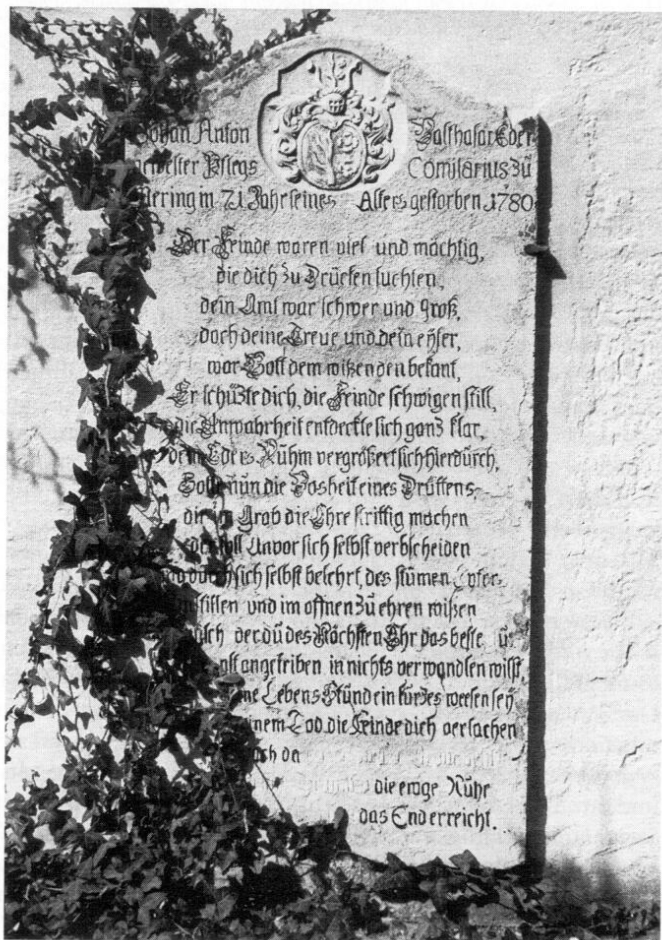 Johan Anton Balthasar Eder
gewester Pflegs Comißarius zü
Mering im 71 Jahr seines Alters gestorben 1780
Der Feinde waren viel und mächtig,
die dich zu Drücken suchten,
dein Amt war schwer und groß,
doch deine Treue und dein eyfer,
war Gott dem wißenden bekant,
Er schüzte dich, die Feinde schwigen still,
die Unwahrheit entdeckte sich ganz klar,
dein Eders Rühm vergrößert sich hierdurch,
Solle nün die Bosheit eines Dritten
dir im Grab die Ehre krittig machen
der soll vor sich selbst
durch sich selbst belehrt, des stümen
stillen und im offnen zü ehren wißen
der dü des Nächsten Ehr das beste ü.
angetriben in nichts verwandlen wilst,
Lebens Stünd ein kürzes weesen sey
Tod die Feinde dich verlachen
da
die ewge Rühe
das End erreicht.